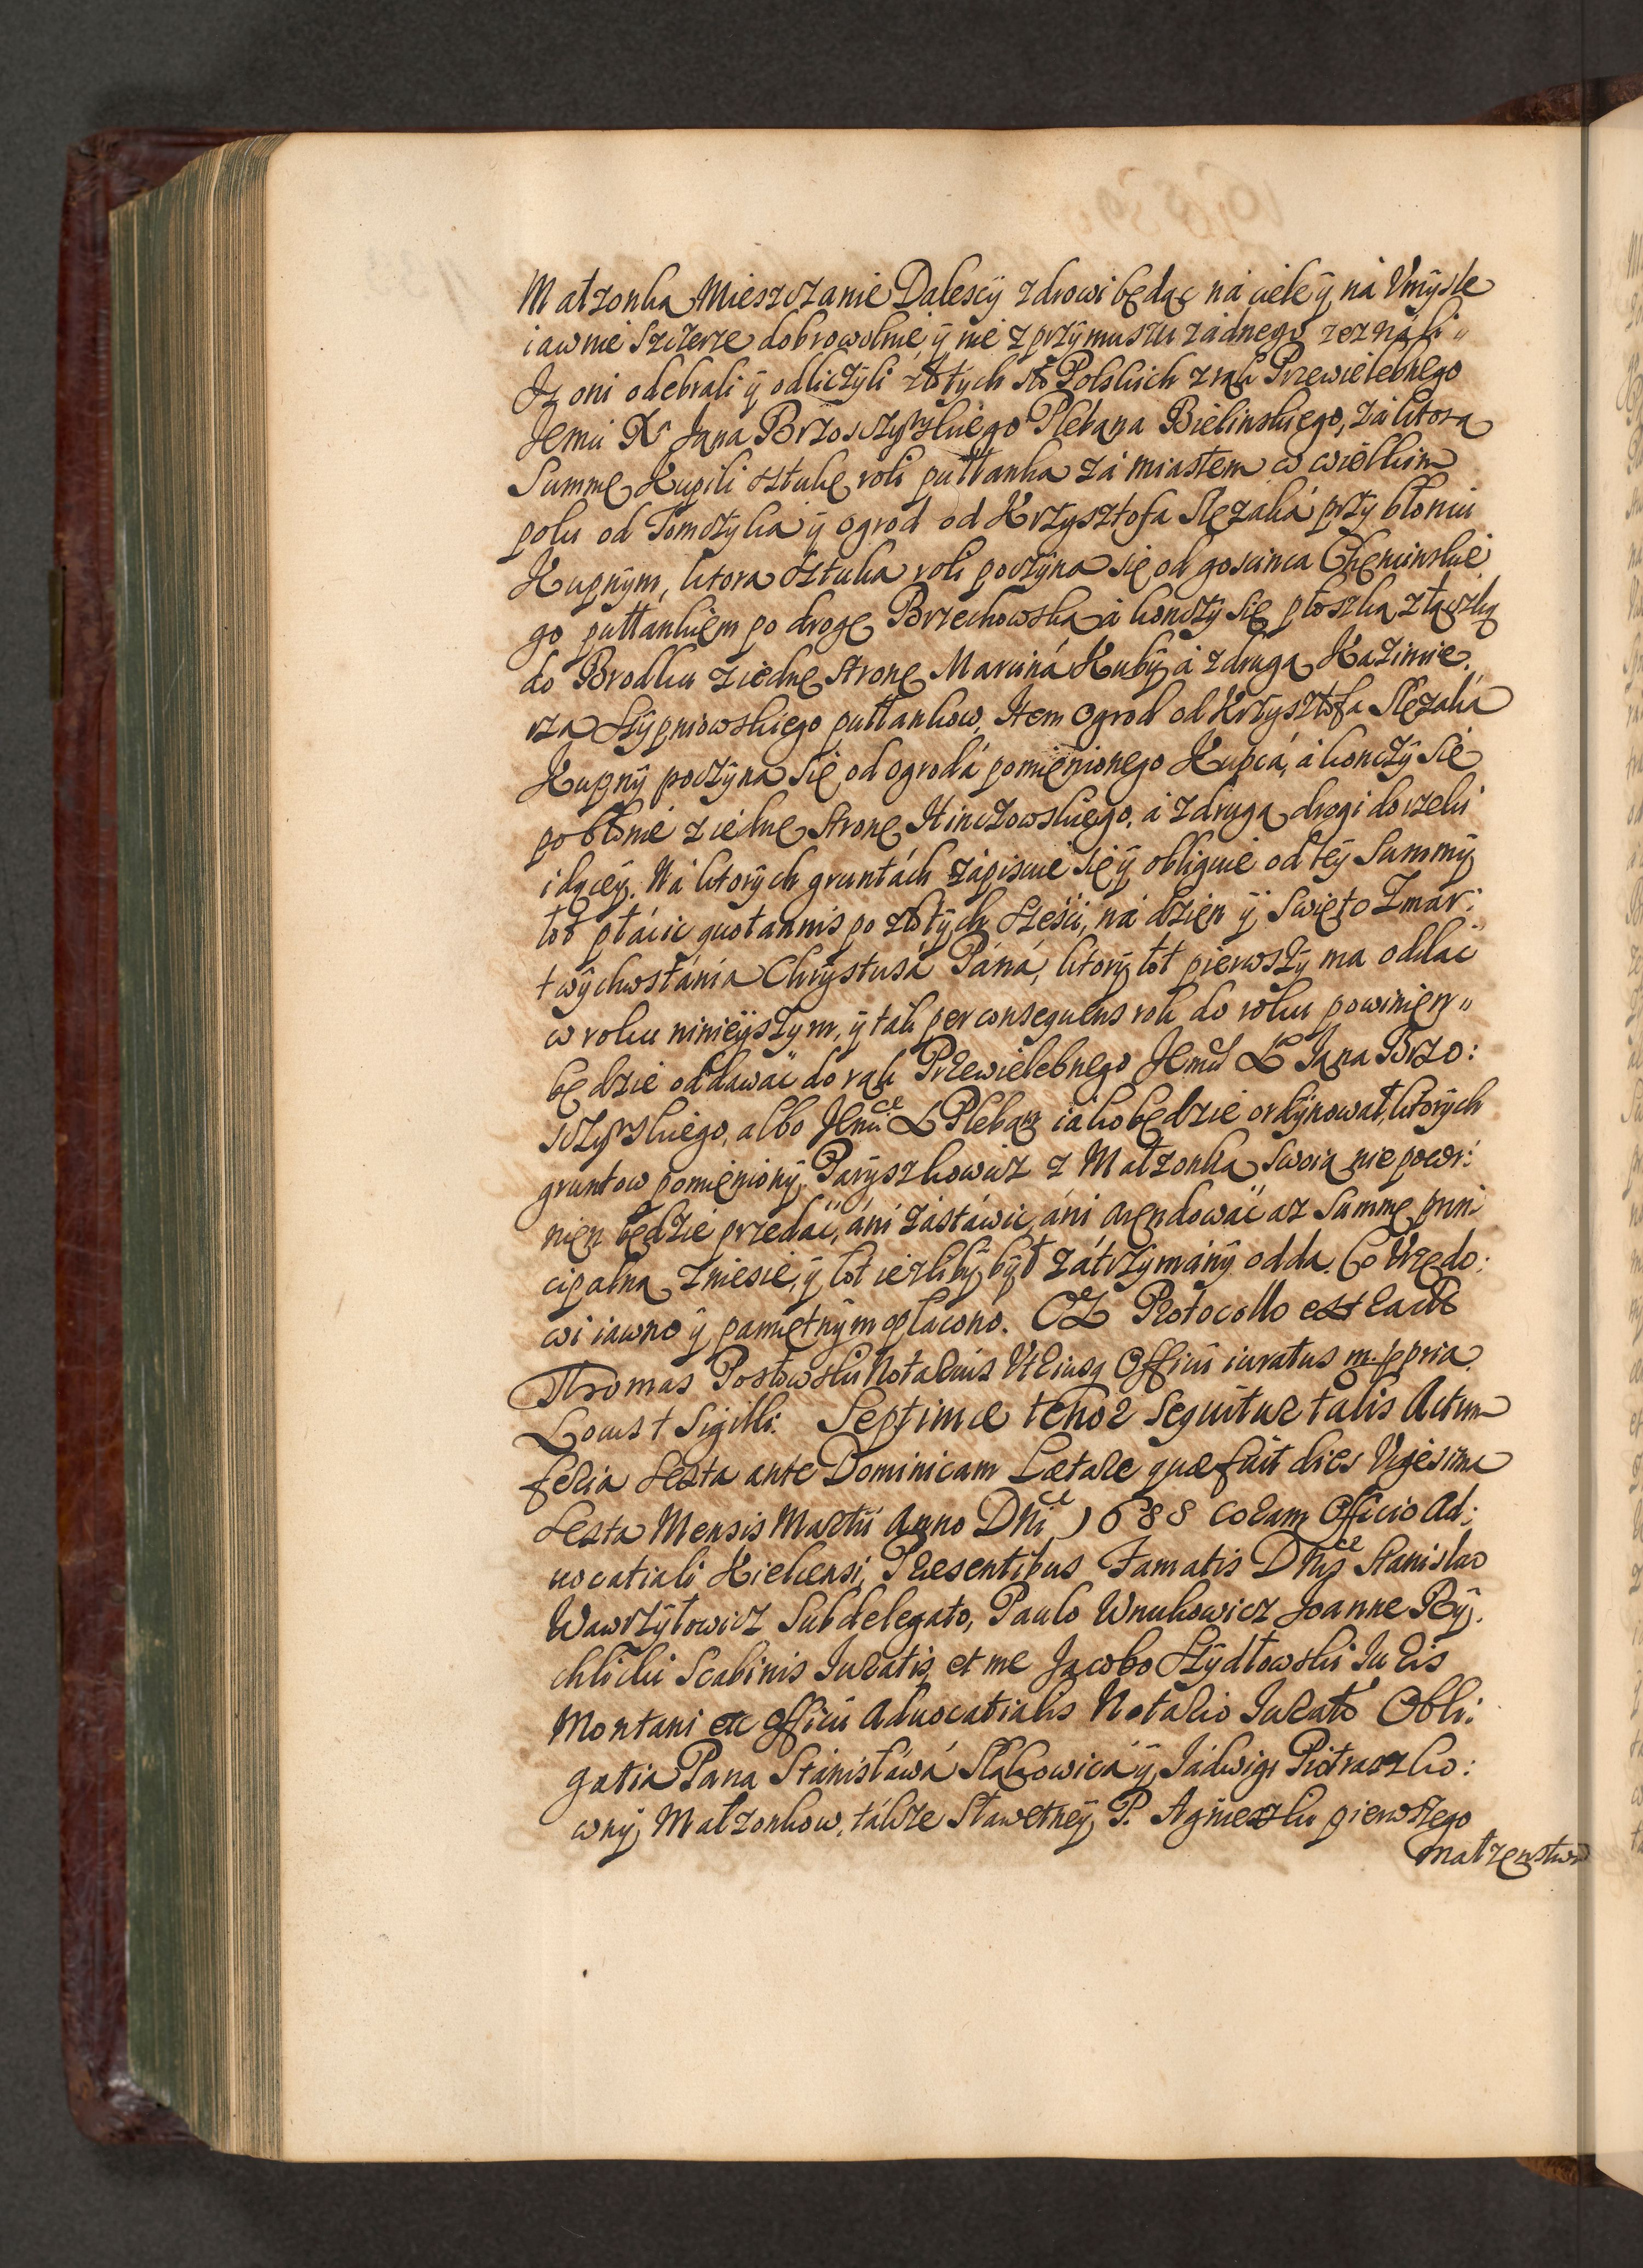 Małzonka Mieszczanie Dalescÿ zdrowi będąc ná ciele ÿ ná Vmÿsle
iawnie szczerze dobrowolnie ÿ nie z przÿmuszu żadnego zeználi
Iz oni odebrali ÿ odliczÿli złotÿch sto Polskich z rąk Przewielebnego
Jemci X Jana Brzosczÿnskiego Plebana Bielinskiego, zá ktorą
Summę Kupili sztukę roli pułtanka zá miastem w wielkim
polu od Tomczyka ÿ ogrod od Krzysztofa Slęzaká przy błoniu
Kupnÿm, ktora sztuka roli poczÿna się od goscinca Chęncinskie
go pułtankiem po drogę Brzechowską á konczÿ się płoszką z łączką
do Brodku z iednę stronę Marciná Kubÿ á z drugą Kazimie,
rza Stÿpniowskiego pułtankow, Item ogrod od Krzysztofa Slęzaká
Kupnÿ poczÿna się od ogrodá pomienionego Kupcá, á konczÿ się
po błonie z iednę stronę Hinczowskiego, á z drugą drogi do rzeki
idącey. Ná ktorÿch gruntách zápisuie się ÿ obliguie od teÿ Summÿ
tot płácic quotannis po złotÿch sześci, ná dzien ÿ swięto Zmar:
twÿchwstánia Chrÿstusá Páná, ktorÿ tot pierwszÿ ma oddać
w roku ninieÿszym, ÿ tak per consequens rok do roku powinien
będzie oddawać do rąk Przewielebnego Jemci X Jana Brzo:
sczÿnskiego, albo Jemci X Pleban iako będzie ordÿnował, ktorÿch
gruntow pomienionÿ Parÿszkowicz z Małzonką swoią nie powi:
nien będzie przedać, áni zástáwic, áni arendowác az Summę prin
cipalną zniesie, ÿ tot iezliby bÿł zátrzÿmánÿ odda. Co Vrzędo:
wi iawno ÿ pamiętnÿm opłacono. Ex Protocollo extradt
Thomas Postowski Notarius Vtriusq Officii iuratus m. ppria.
Locus † Sigilli. Septimæ tenor sequitur talis Actum
feria sexta ante Dominicam Lætare quæ fuit dies Vigesima
sexta Mensis Martii Anno Dni 1688 coram Officio Ad:
uocatiali Kielcensi, Præsentibus Famatis Dnis Stanislao
Wawrzÿtowicz Subdelegato, Paulo Wnukowicz Joanne Rÿ,
chlicki Scabinis Iuratis, et me Jacobo Szÿdłowski Iuris
Montani et Officii Aduocatialis Notario Iurato Obli:
gatia Pana Stánisłáwá Slákowicá ÿ Jádwigi Piotraszko:
wnÿ Małzonkow, tákze Sławetneÿ P. Agnieszki pierwszego
małzenstwa